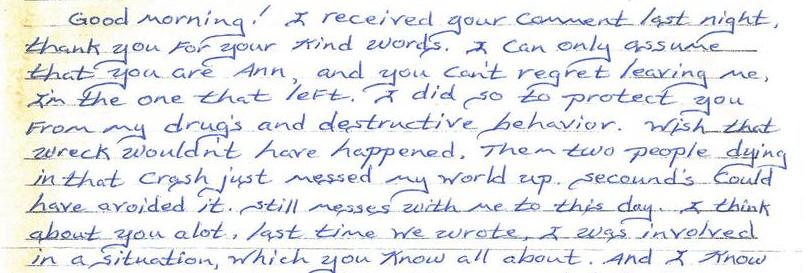 Good morning! I received your comment last night,
thank you for your kind words. I can only assume
that you are Ann, and you can't regret leaving me,
I'm the one that left. I did so to protect you
From my drug's and destructive behavior. Wish that
wreck wouldn't have happened. Them two people dying
in that crash just messed my world up. Secound's could
have avoided it. Still messes with me to this day. I think
about you alot, last time we wrote, I was involved
in a situation, which you know all about. And I know